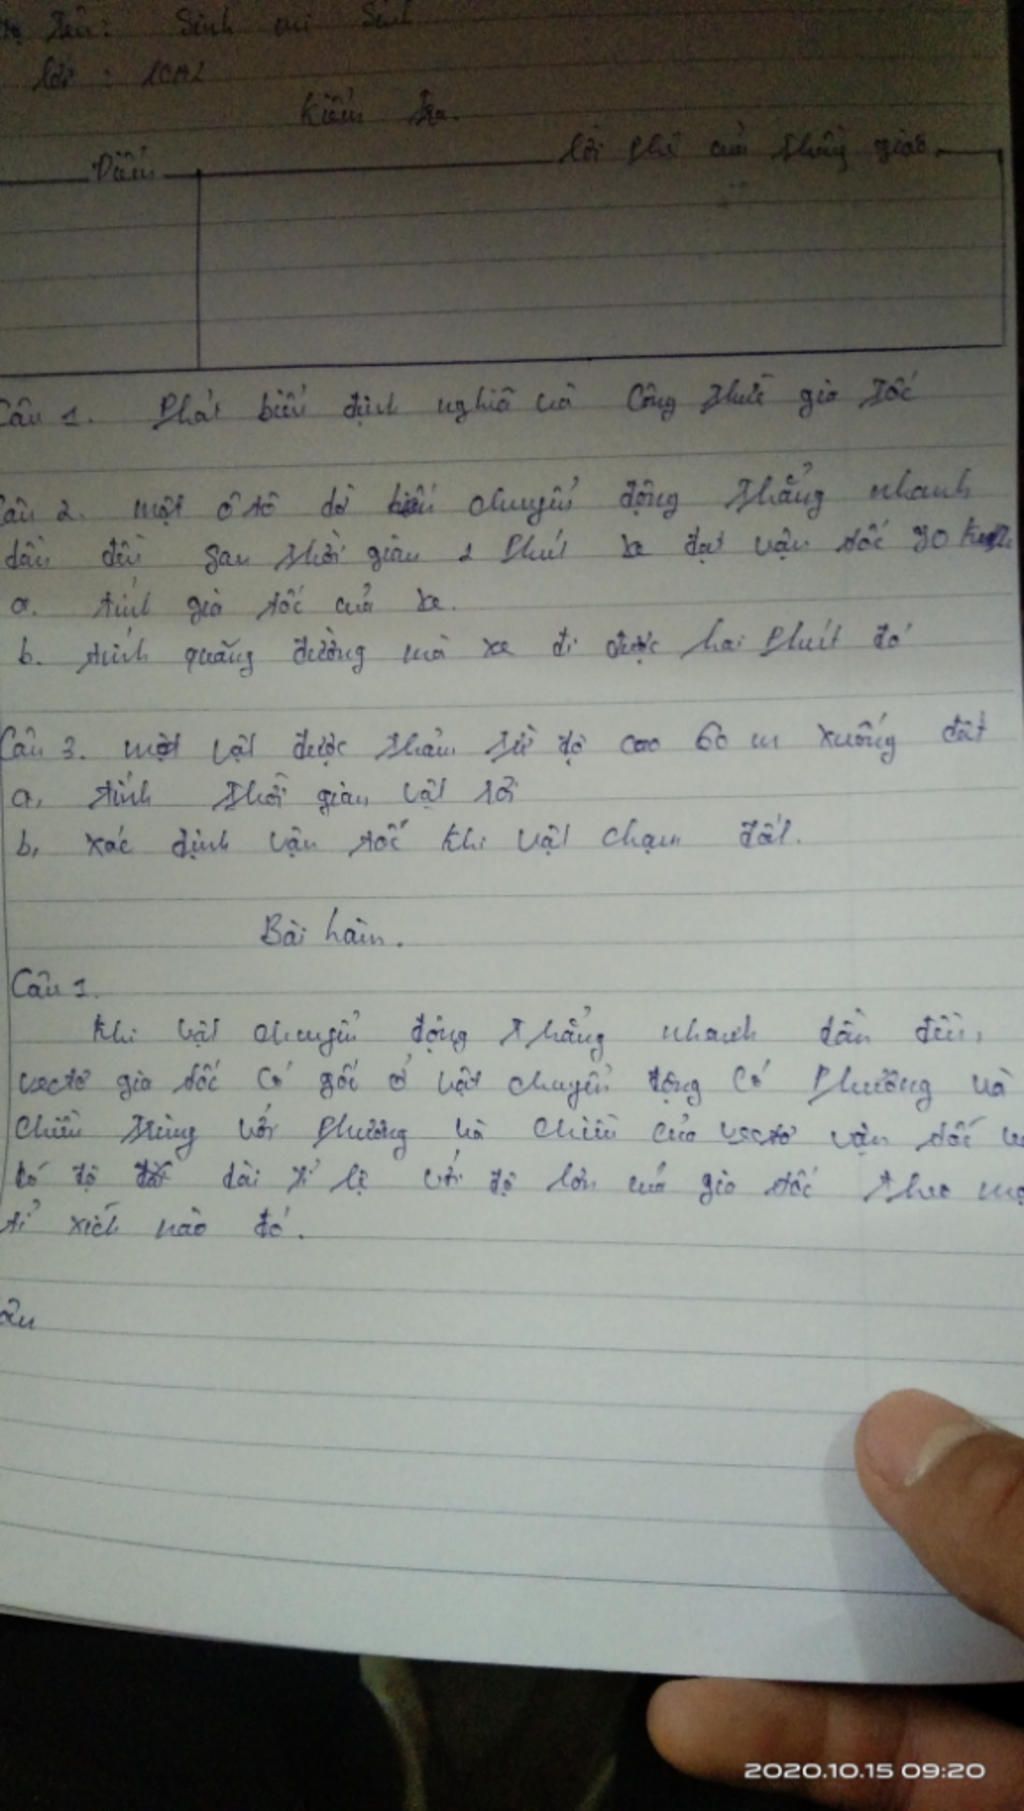 Tên: Sinh
lớp : 10A2
Kiểm tra.
Điểm
lời phê của thầy giáo
Câu 1. Phát biểu định nghĩa và Công thức gia tốc
Câu 2. một ô tô chuyển động thẳng nhanh
dần đều sau thời gian 2 Phút xe đạt vận tốc
a. tính gia tốc của xe.
b. tính quãng đường mà xe đi được hai Phút đó
Câu 3. một vật được thả từ độ cao 60 m xuống đất
a, tính thời gian vật rơi
b, xác định vận tốc khi vật chạm đất.
Bài làm.
Câu 1.
Khi vật chuyển động thẳng nhanh dần đều,
vectơ gia tốc Có gốc ở vật chuyển động Có Phương và
Chiều trùng với Phương và Chiều của vectơ vận tốc
Có độ dài tỉ lệ với độ lớn của gia tốc theo
tỉ xích nào đó.